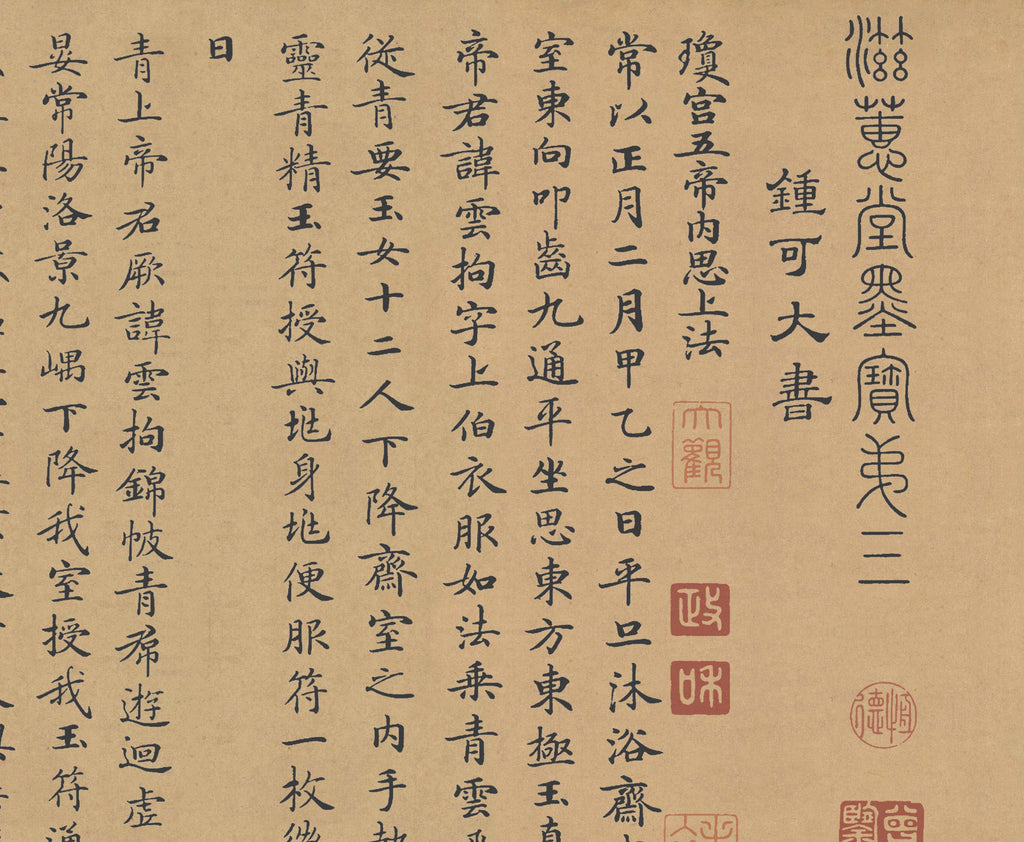 滋蕙堂墨寶弟二
鍾可大書
瓊宮五帝内思上法
大觀
政
和
常以正月二月甲乙之日平旦沐浴齋
室東向叩齒九通平坐思東方東極玉真
帝君諱雲拘字上伯衣服如法乘青雲
從青要玉女十二人下降齋室之内手執
靈青精玉符授與兆身兆便服符一枚
曰
青上帝君厥諱雲拘錦帔青帬遊迴虛
晏常陽洛景九嵎下降我室授我玉符通